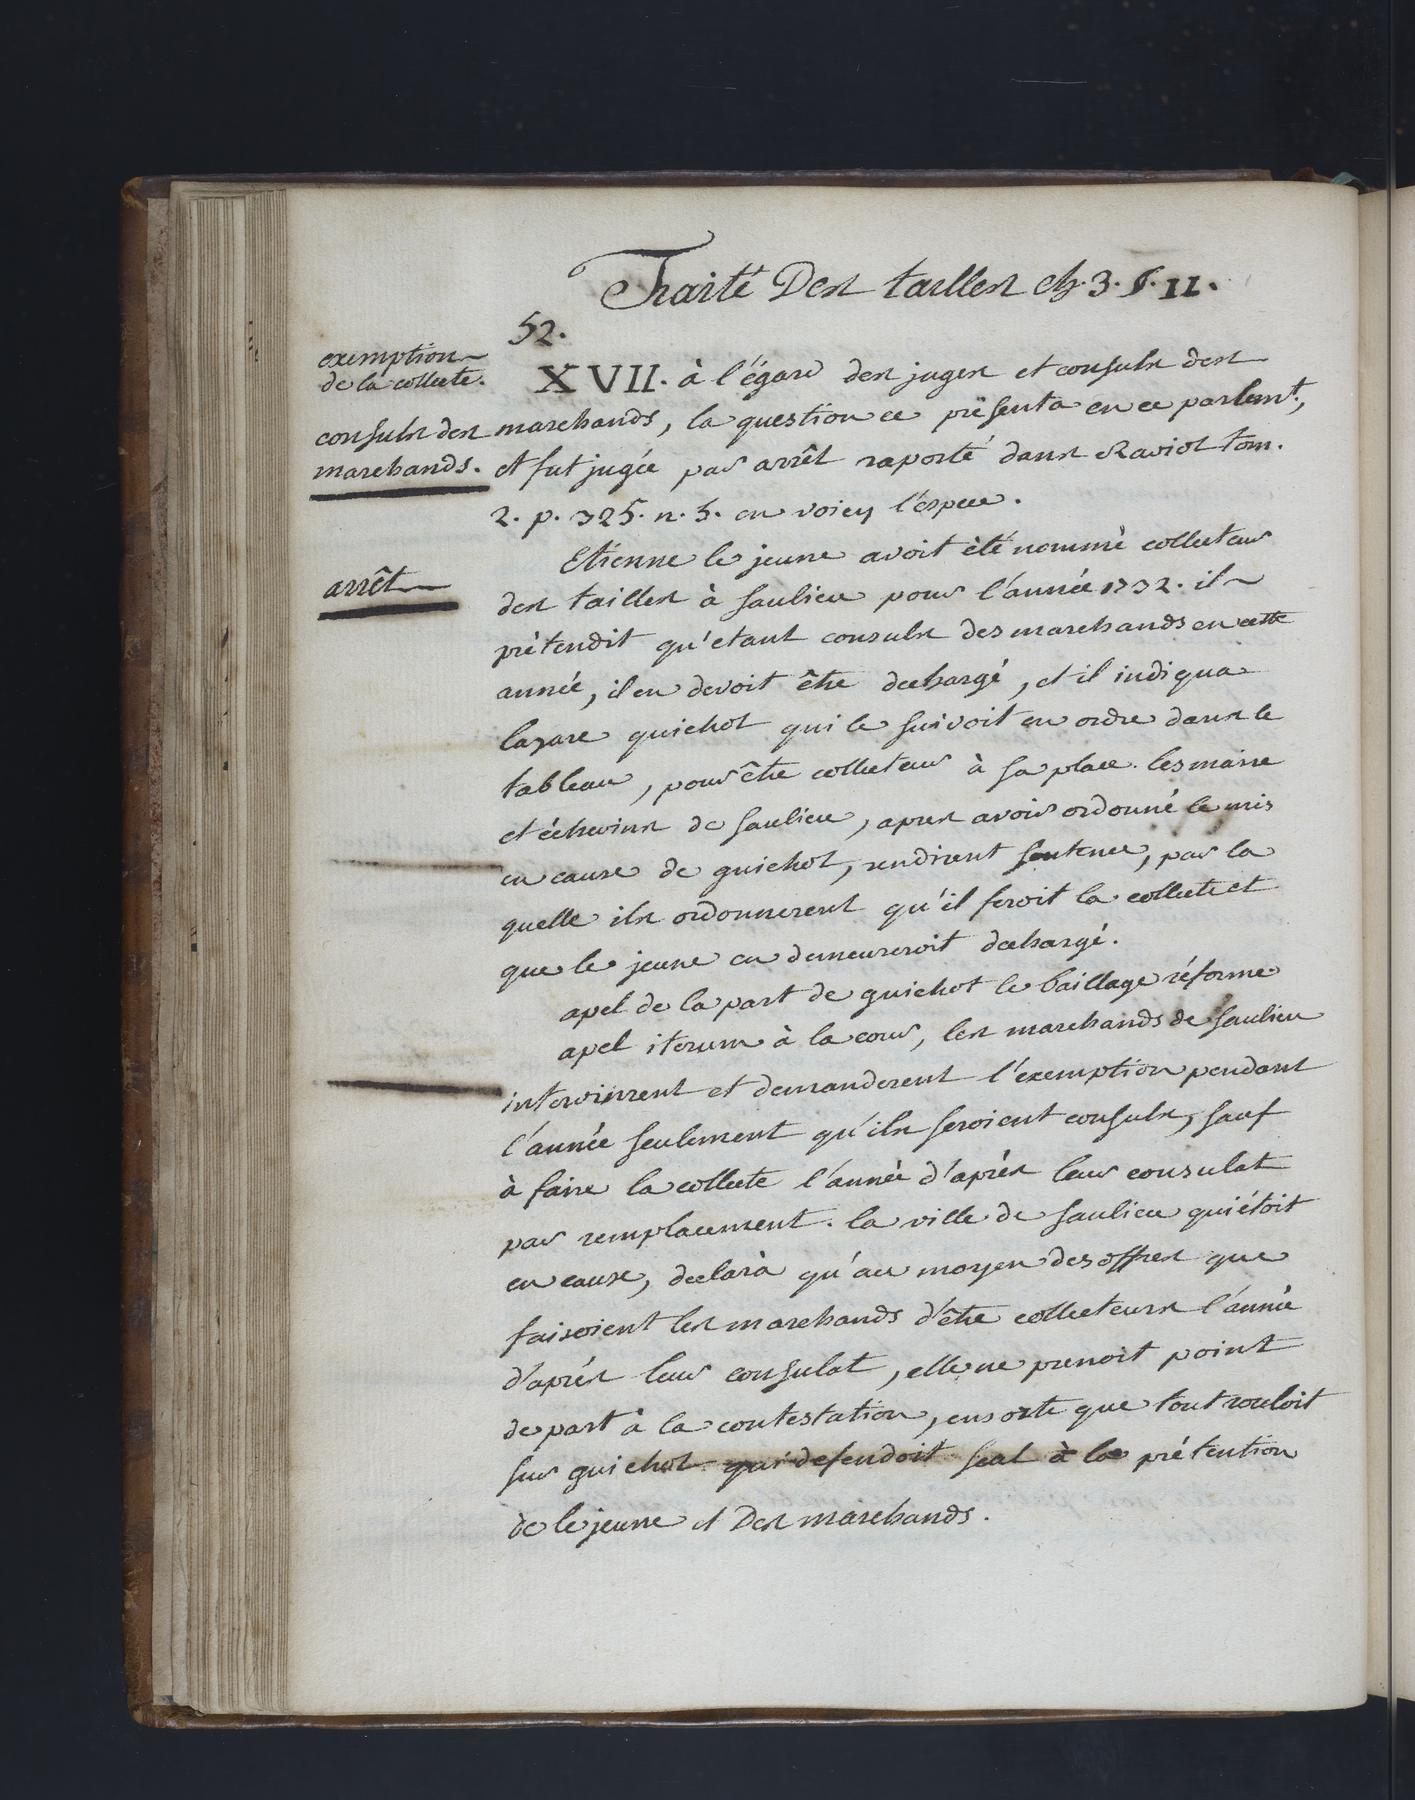 Traité Des tailles ch. 3. §. II.
52.
exemption
de la collecte.
consuls des
marchands.
XVII. à l'égard des juges et consuls des
marchands, la question ce présenta en ce parlemt,
et fut jugée par arrêt raporté dans Raviot tom.
2. p. 325. n. 5. en voicy l'espece.
arrêt
Etienne le jeune avoit èté nommé collecteur
des tailles à Saulieu pour l'année 1732. il
prétendit qu'etant consuls des marchands en cette
année, il en devoit être dechargé, et il indiqua
lazare guichot qui le suivoit en ordre dans le
tableau, pour être collecteur à sa place. les maire
et échevins de Saulieu, apres avoir ordonné le mis
en cause de guichot, rendirent sentence, par la
quelle ils ordonnerent qu'il feroit la collecte et
que le jeune en demeureroit dechargé.
apel de la part de guichot le baillage réforme
apel iterum à la cour, les marchands de Saulieu
intervinrent et demanderent l'exemption pendant
l'année seulement qu'ils seroient consuls, sauf
à faire la collecte l'année d'après leur consulat
par remplacement. la ville de Saulieu qui étoit
en cause, declara qu'au moyen des offres que
faisoient les marchands d'être collecteurs l'année
d'après leur consulat, elle ne prenoit point
de part à la contestation, ensorte que tout rouloit
sur guichot qui defendoit seul à la prétention
de le jeune et Des marchands.